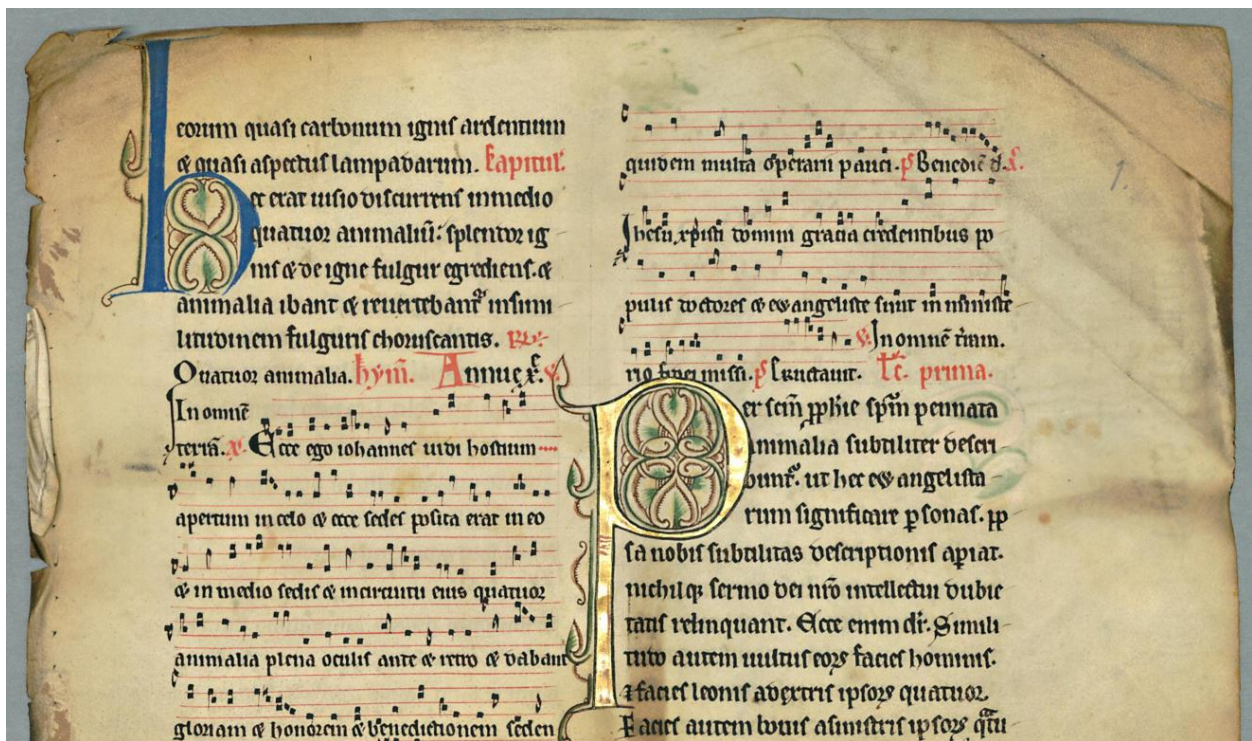 eorum quasi carbonum ignis ardentium
& quasi aspectus lampadarum. kapitul'.
Hec erat uisio discurrens in medio
quatuor animaliū: splendor ig
nis & de igne fulgur egrediens. &
animalia ibant & reuertebant᷑ in simi
litudinem fulguris choruscantis.
Quatuor animalia. hym̄. Annue xp̄e. v̄.
In omnē
terrā. Ecce ego iohannes uidi hostium
apertum in celo & ecce sedes posita erat in eo
& in medio sedis & in circuitu eius quatuor
animalia plena oculis ante & retro & dabant
gloriam & honorem & benedictionem seden
quidem multa operarii pauci. p̄s Benedic̄
Ihesu xpisti domini gracia credentibus po
pulis doctores & ewangeliste sunt in ministe
In omnē t̄ram.
rio fidei missi. p̄s Eructauit. Lc̄. prima.
Per sc̄m ꝓph̄ie sp̄m pennata
animalia subtiliter descri
bunt᷑. ut hec ewangelista
rum significare ꝑsonas. ꝓp
sa nobis subtilitas descriptionis apiat.
nichilqꝫ sermo dei nr̄o intellectui dubie
tatis relinquant. Ecce enim dr̄. Simili
tudo autem uultus eoꝝ facies hominis.
& facies leonis adextris ipsoꝝ quatuor.
Facies autem bouis asinistris ipsoꝝ q̄tu
1.